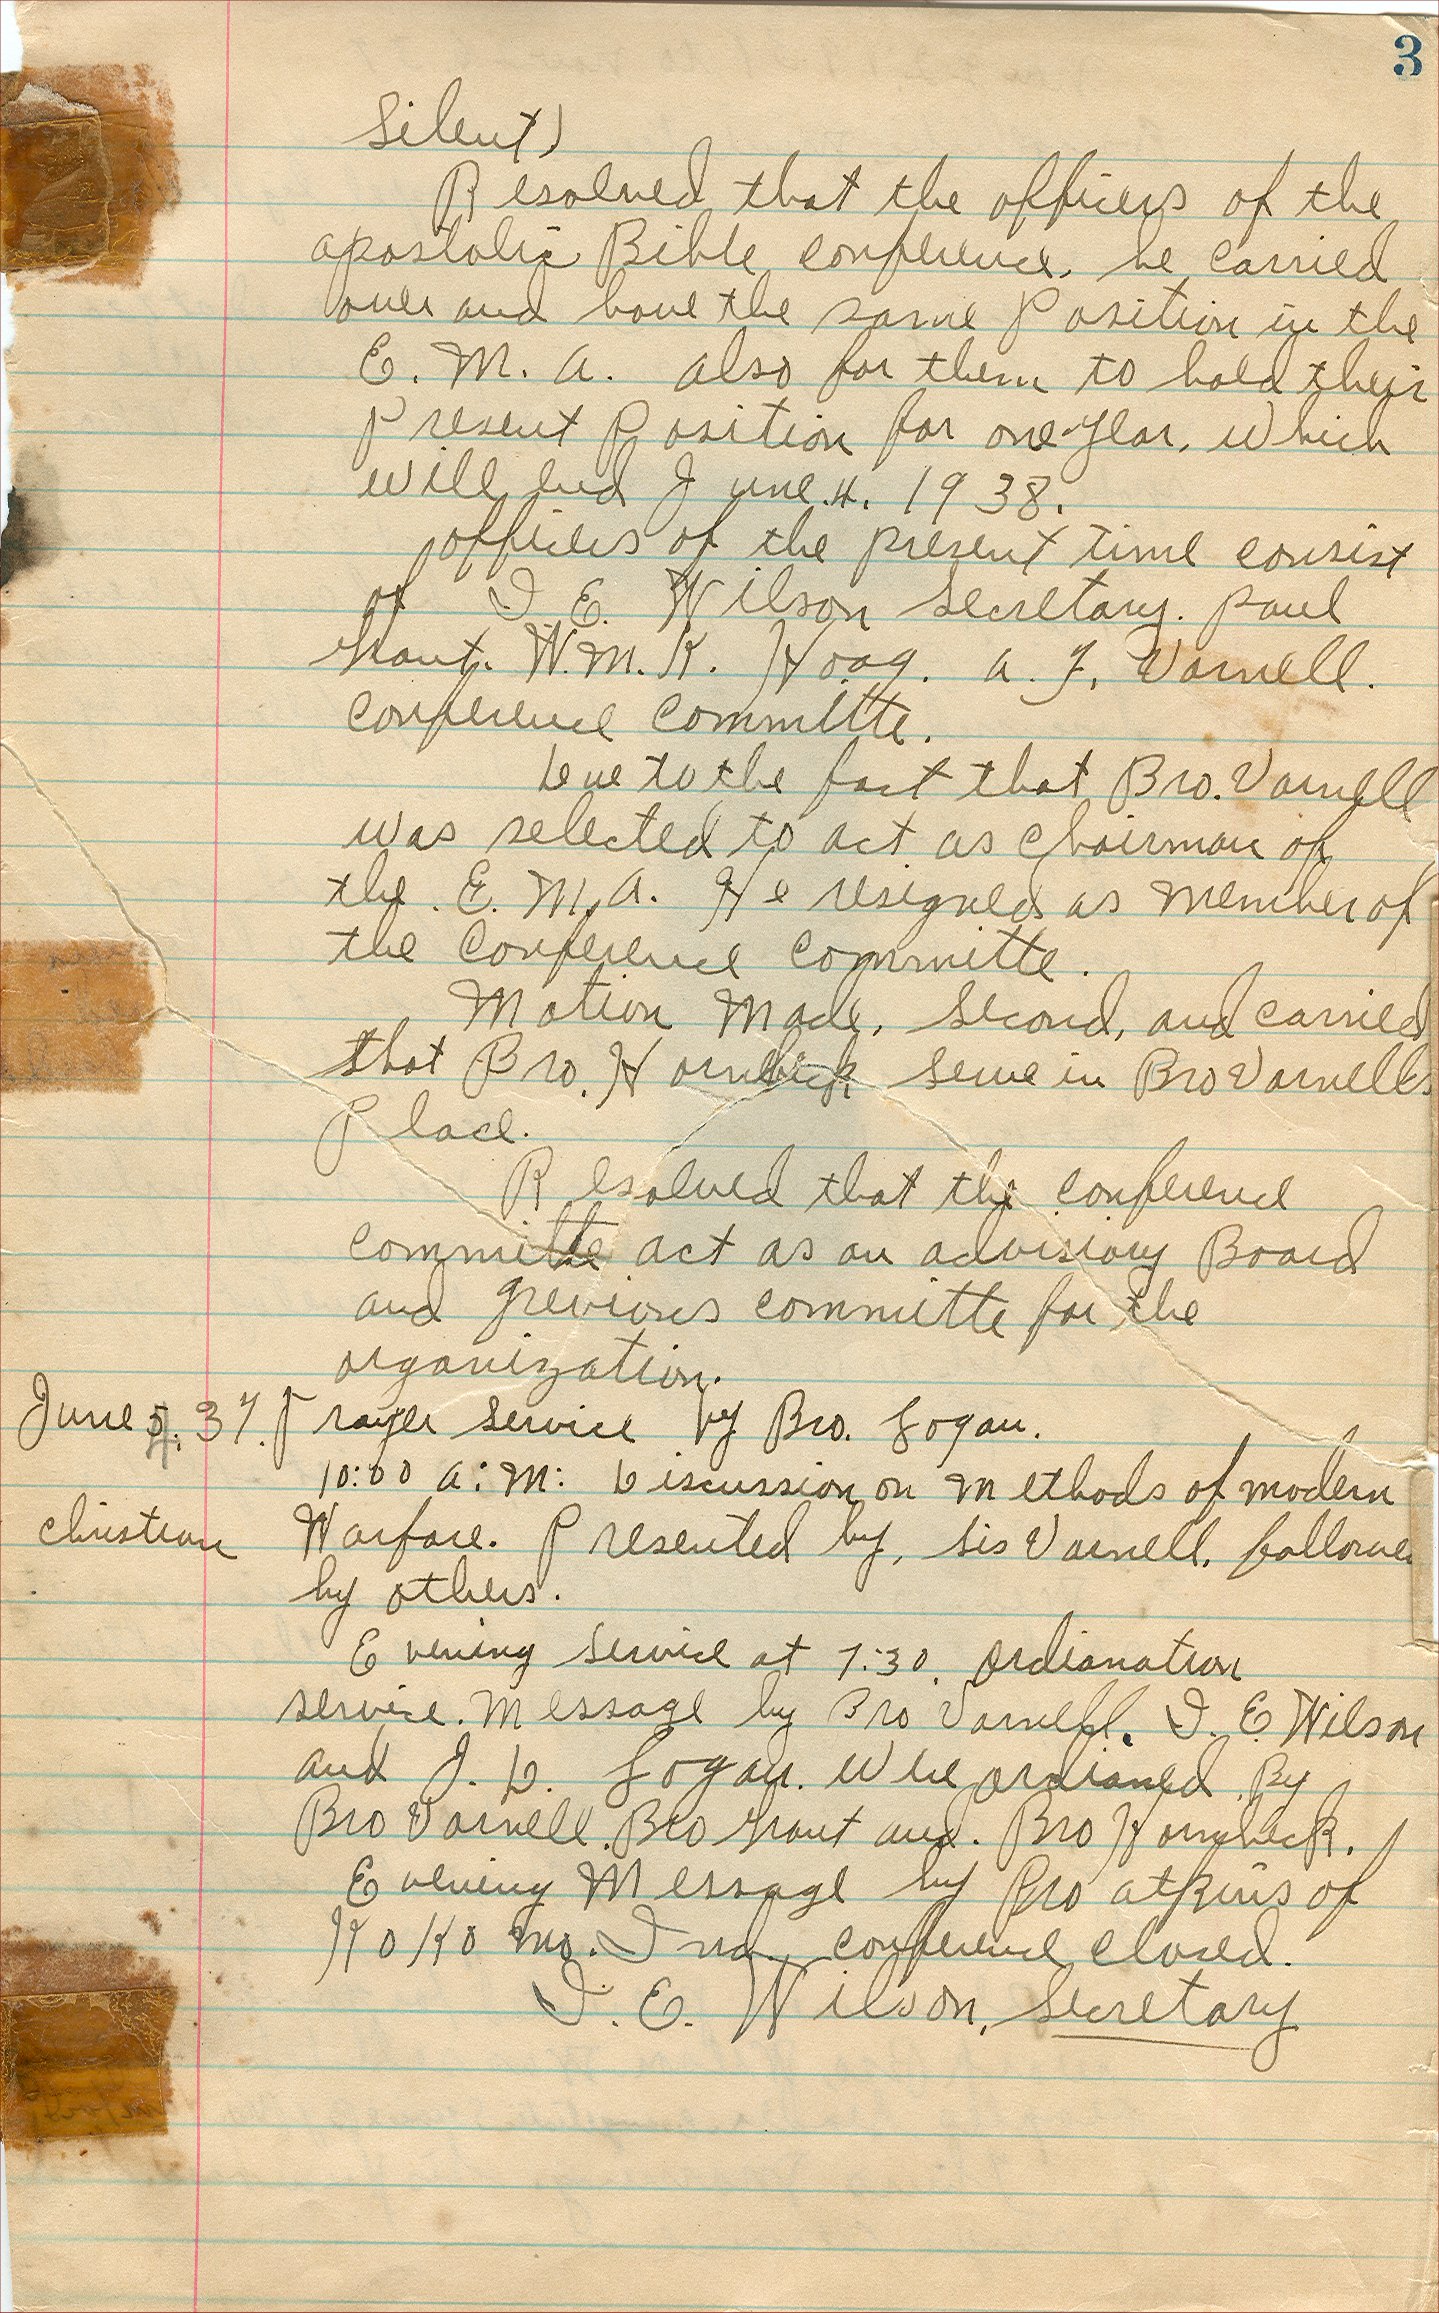 3
Silent)
Resolved that the officers of the
apostolic Bible conference, be carried
over and have the same Position in the
E. M. A. also for them to hold their
Present Position for one year. which
will end June 4. 1938.
officers of the present time consist
of I E. Wilson Secretary. Paul
Grant. W.M.K. Hoag. A. J. Varnell.
conference committe.
Due to the fact that Bro. Varnell
was selected to act as chairman of
the E. M. A. He resigned as member of
the conference committe.
Motion Made, Second, and carried
that Bro. Hornbeck serve in Bro Varnells
Place.
Resolved that the conference
committe act as an advisiory Board
and Grevious committe for the
organization.
June 37. Prayer Service by Bro. Logan.
10:00 A:M: Discussion on Methods of modern
christian Warfare. Presented by, Sis Varnell, followed
by others.
Evening service at 7:30. Ordianation
service. Message by Bro Varnell. I. E. Wilson
and J. D. Logan. were ordianed By
Bro Varnell. Bro Grant and. Bro Hornbeck.
Evening Message by Bro Atkins of
KoKomo. Ind. conference closed.
I. E. Wilson, Secretary